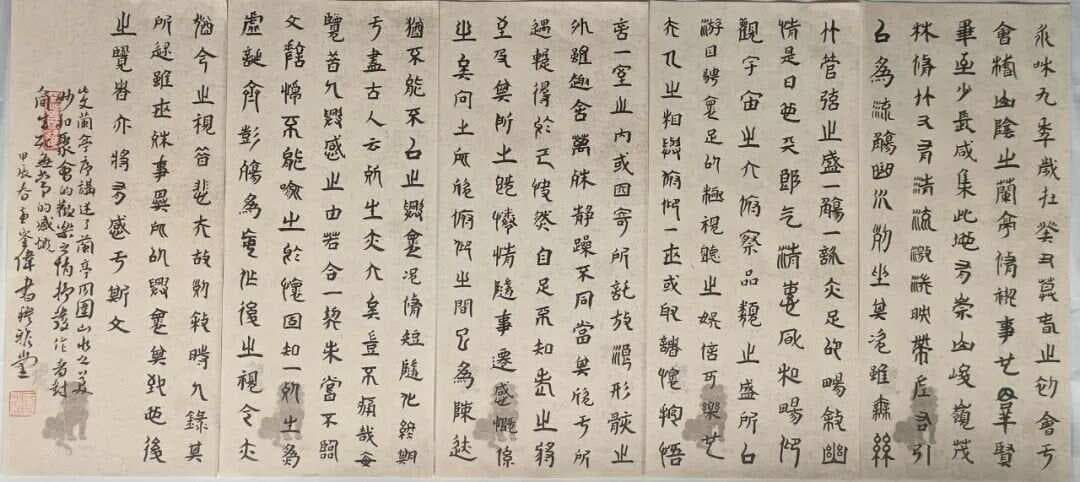 永咊九年歲在癸丑莫春之初會于
會稽山陰之蘭亭脩禊事也羣賢
畢至少長咸集此地有崇山峻嶺茂
林脩竹又有清流激湍映帶左右引
以為流觴曲水列坐其次雖無絲
竹管弦之盛一觴一詠亦足以暢敘幽
情是日也天朗气清惠風和暢仰
觀宇宙之大俯察品類之盛所以
游目騁懷足以極視聽之娛信可樂也
夫人之相與俯仰一世或取諸懷抱悟
言一室之內或因寄所託放浪形骸之
外雖趣舍萬殊靜躁不同當其欣于所
遇暫得於己快然自足不知老之將
至及其所之既惓情隨事遷感慨係
之矣向之所欣俯仰之間已為陳迹
猶不能不以之興懷況脩短隨化終期
于盡古人云死生亦大矣豈不痛哉每
覽昔人興感之由若合一契未嘗不臨
文嗟悼不能喻之於懷固知一死生為
虛誕齊彭殤為妄作後之視今亦
猶今之視昔悲夫故列敘時人錄其
所述雖世殊事異所以興懷其致也後
之覽者亦將有感于斯文
文蘭亭序講述了蘭亭周圍山水之美
妙和聚會的歡樂之情抒發作者對
生死無常的感慨
甲辰春 偉書